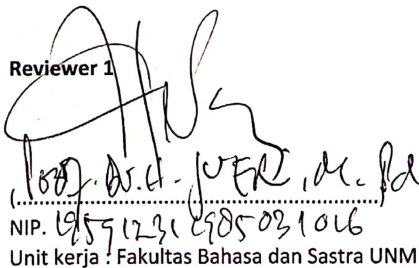 Reviewer 1
Prof. Dr. H. , M. Pd
NIP. 19591231 198503 1 016
Unit kerja : Fakultas Bahasa dan Sastra UNM